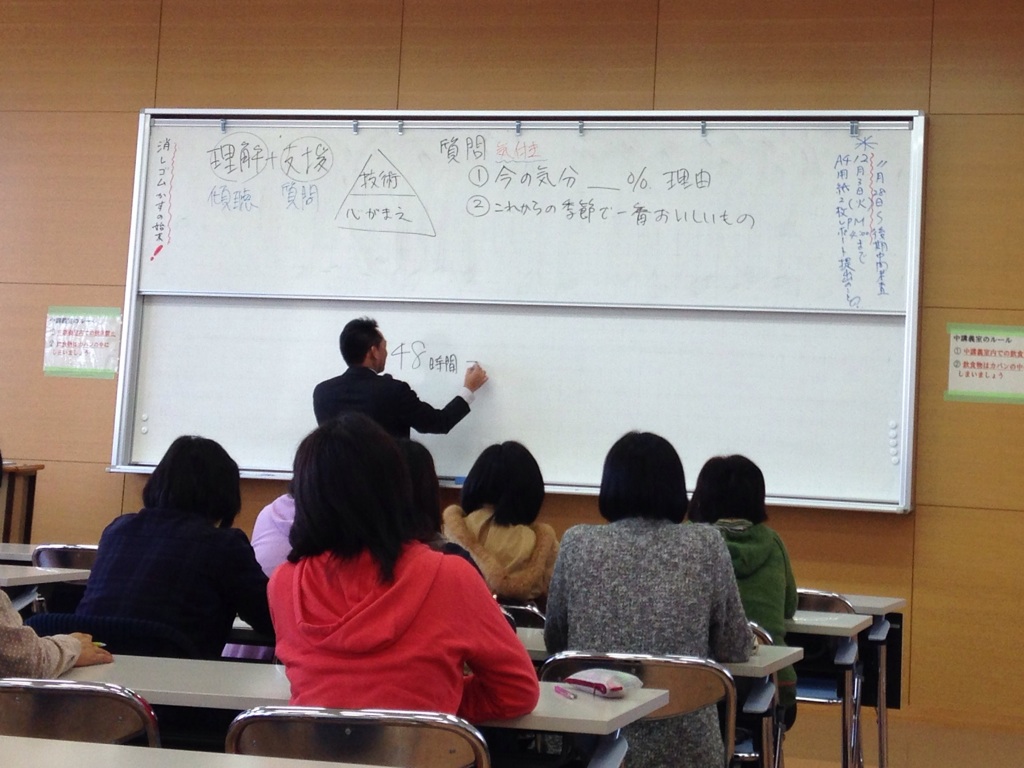 消しゴムかすの始末!
理解+支援
傾聴 質問
技術
心がまえ
質問 気付き
① 今の気分 __% 理由
② これからの季節で一番おいしいもの
※ 11月28日
12月3日(火)
まで
A4用紙2枚レポート提出
48時間
中講義室のルール
① 中講義室内での飲食
② 飲食物はカバンの中
しまいましょう